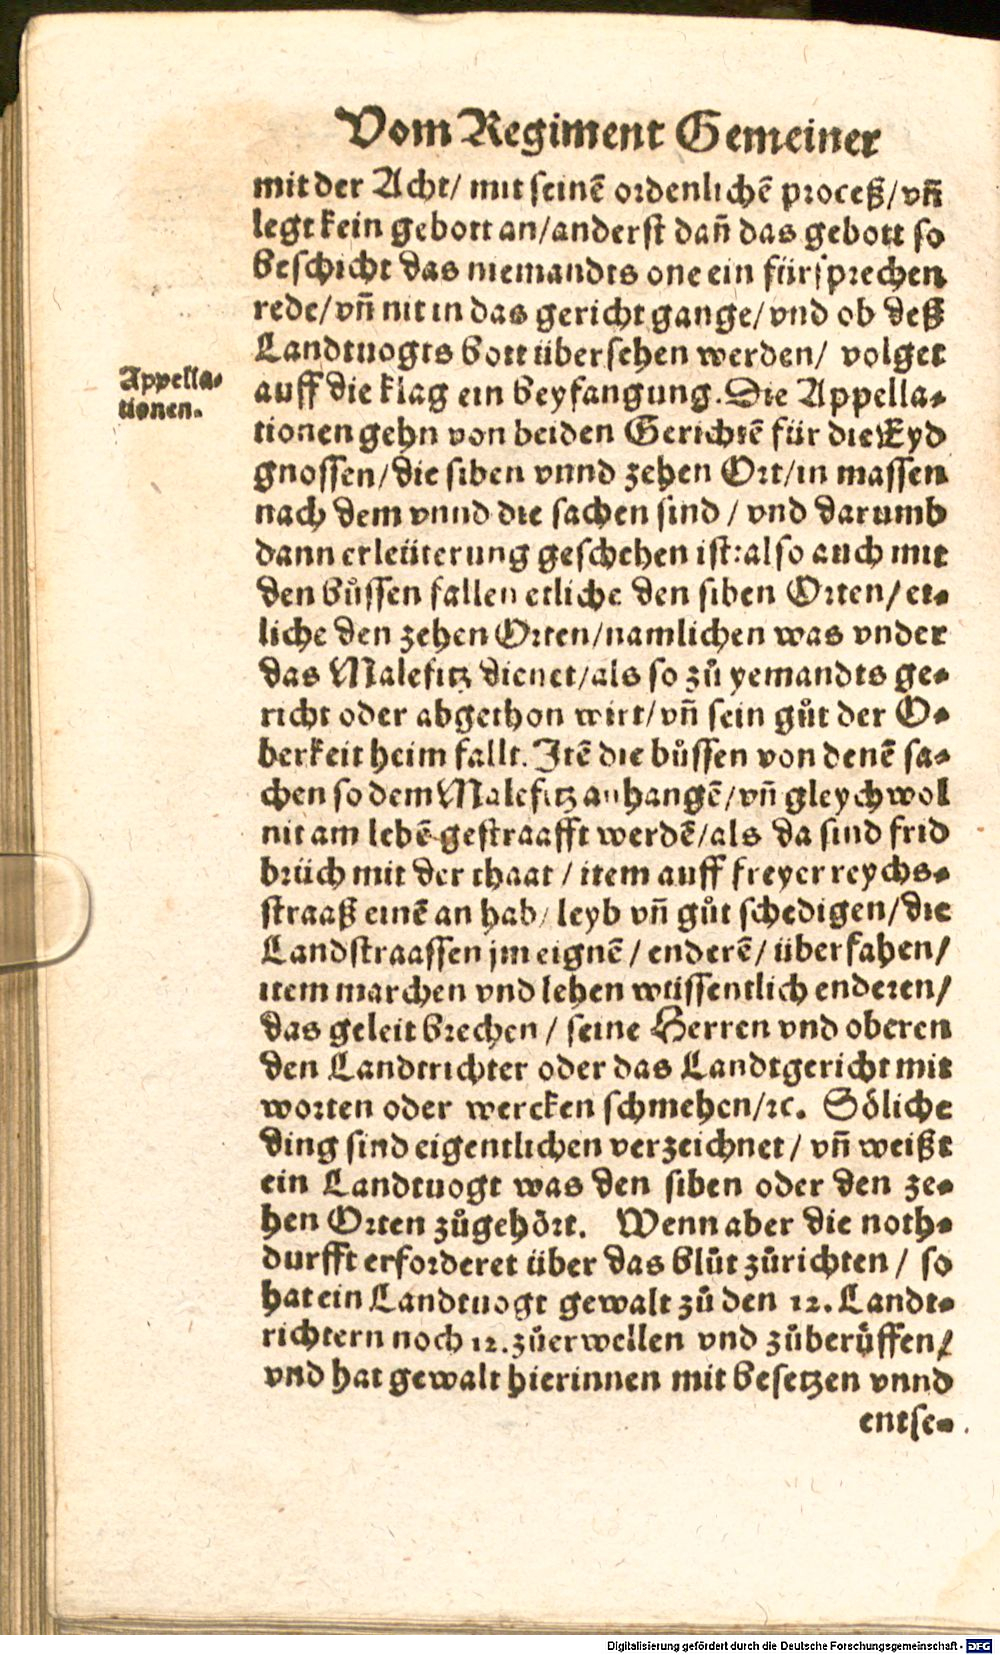 Vom Regiment Gemeiner
mit der Acht/ mit seinē ordenlichē proceß/vñ
legt kein gebott an/anderst dañ das gebott so
beschicht das niemandts one ein fürsprechen
rede/vñ nit in das gericht gange/vnd ob deß
Landtuogts bott übersehen werden/ volget
auff die klag ein beyfangung. Die Appella-
Appella-
tionen.
tionen gehn von beiden Gerichtē für die Eyd
gnossen/die siben vnnd zehen Ort/in massen
nach dem vnnd die sachen sind / vnd darumb
dann erleüterung geschehen ist: also auch mit
den bůssen fallen etliche den siben Orten/ et-
liche den zehen Orten/namlichen was vnder
das Malefitz dienet/als so zů yemandts ge-
richt oder abgethon wirt/vñ sein gůt der O-
berkeit heim fallt. Itē die bůssen von denē sa-
chen so dem Malefitz anhangē/vñ gleychwol
nit am lebē gestraafft werdē/als da sind frid
brüch mit der thaat / item auff freyer reychs-
straaß einē an hab/ leyb vñ gůt schedigen/die
Landstraassen jm eignē / enderē / überfahen/
item marchen vnd lehen wüssentlich enderen/
das geleit brechen / seine Herren vnd oberen
den Landtrichter oder das Landtgericht mit
worten oder wercken schmehen/ꝛc. Söliche
ding sind eigentlichen verzeichnet / vñ weißt
ein Landtuogt was den siben oder den ze-
hen Orten zůgehört. Wenn aber die noth-
durfft erforderet über das blůt zůrichten / so
hat ein Landtuogt gewalt zů den 12. Landt-
richtern noch 12. zůerwellen vnd zůberůffen/
vnd hat gewalt hierinnen mit besetzen vnnd
entse-
Digitalisierung gefördert durch die Deutsche Forschungsgemeinschaft - DFG